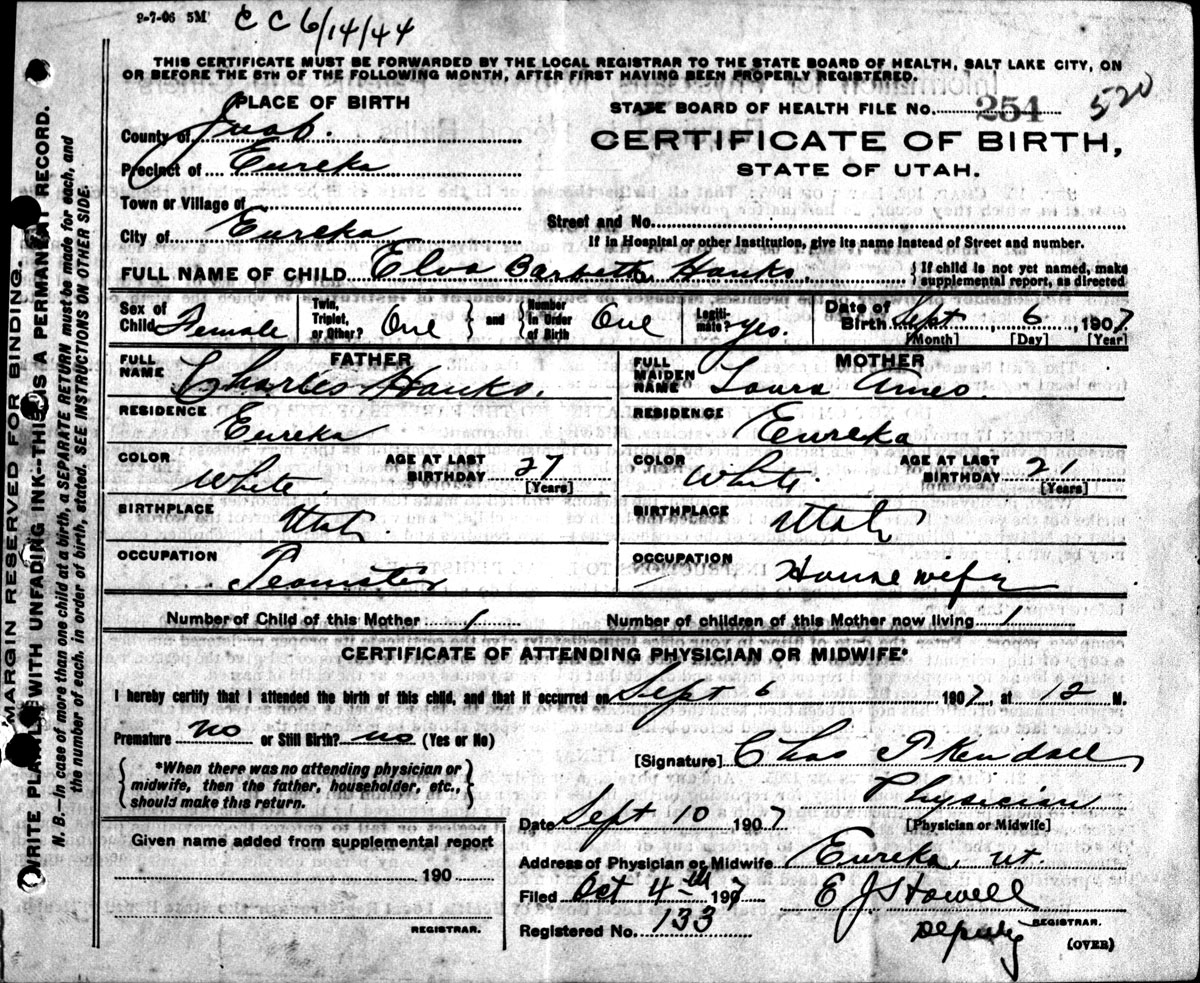 2-7-06 5M
C C 6/14/44
THIS CERTIFICATE MUST BE FORWARDED BY THE LOCAL REGISTRAR TO THE STATE BOARD OF HEALTH, SALT LAKE CITY, ON
OR BEFORE THE 5TH OF THE FOLLOWING MONTH, AFTER FIRST HAVING BEEN PROPERLY REGISTERED.
PLACE OF BIRTH
STATE BOARD OF HEALTH FILE NO. 254 520
County of Juab.
CERTIFICATE OF BIRTH,
Precinct of Eureka
STATE OF UTAH.
Town or Village of
Street and No.
City of Eureka
If in Hospital or other Institution, give its name instead of Street and number.
FULL NAME OF CHILD Elva Barbetta Hanks. { If child is not yet named, make supplemental report, as directed
Sex of Child Female Twin, Triplet, or Other? One and Number in Order of Birth One Legitimate? yes. Date of Birth Sept, 6, 1907
[Month] [Day] [Year]
FATHER
FULL NAME Charles Hanks.
MOTHER
FULL MAIDEN NAME Laura Ames.
RESIDENCE Eureka
RESIDENCE Eureka
COLOR White. AGE AT LAST BIRTHDAY 27 [Years]
COLOR White. AGE AT LAST BIRTHDAY 21 [Years]
BIRTHPLACE Utah.
BIRTHPLACE Utah
OCCUPATION Teamster
OCCUPATION House wife
Number of Child of this Mother 1 Number of children of this Mother now living 1
CERTIFICATE OF ATTENDING PHYSICIAN OR MIDWIFE*
I hereby certify that I attended the birth of this child, and that it occurred on Sept 6 1907, at 12 M.
Premature no or Still Birth? no (Yes or No)
[Signature] Chas P Kendall
*When there was no attending physician or
midwife, then the father, householder, etc.,
should make this return.
Physician
[Physician or Midwife]
Date Sept 10 1907
Given name added from supplemental report
190
REGISTRAR.
Address of Physician or Midwife Eureka, Ut.
Filed Oct 4th 1907 E J Howell
REGISTRAR.
Registered No. 133 Deputy
(OVER)
MARGIN RESERVED FOR BINDING.
WRITE PLAINLY WITH UNFADING INK--THIS IS A PERMANENT RECORD.
N. B.--In case of more than one child at a birth, a SEPARATE RETURN must be made for each, and
the number of each, in order of birth, stated. SEE INSTRUCTIONS ON OTHER SIDE.